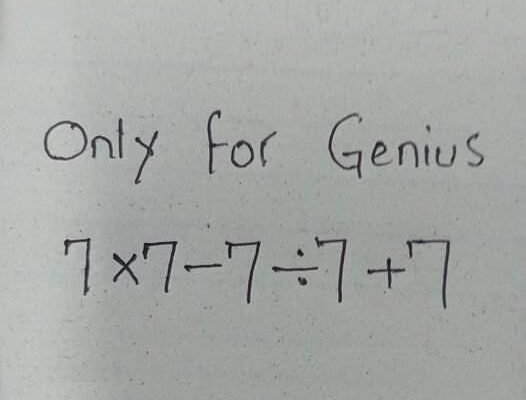 Only for Genius
7×7-7÷7+7